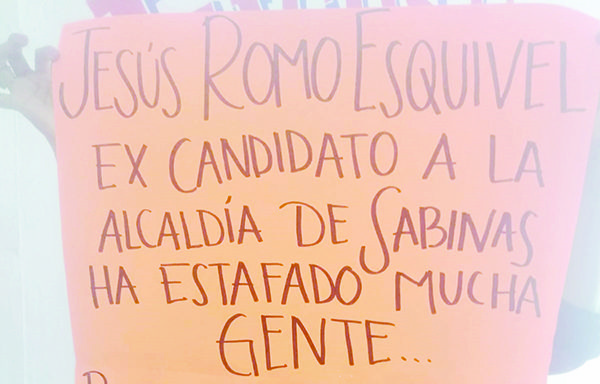 JESÚS ROMO ESQUIVEL
EX CANDIDATO A LA
ALCALDÍA DE SABINAS
HA ESTAFADO MUCHA
GENTE...